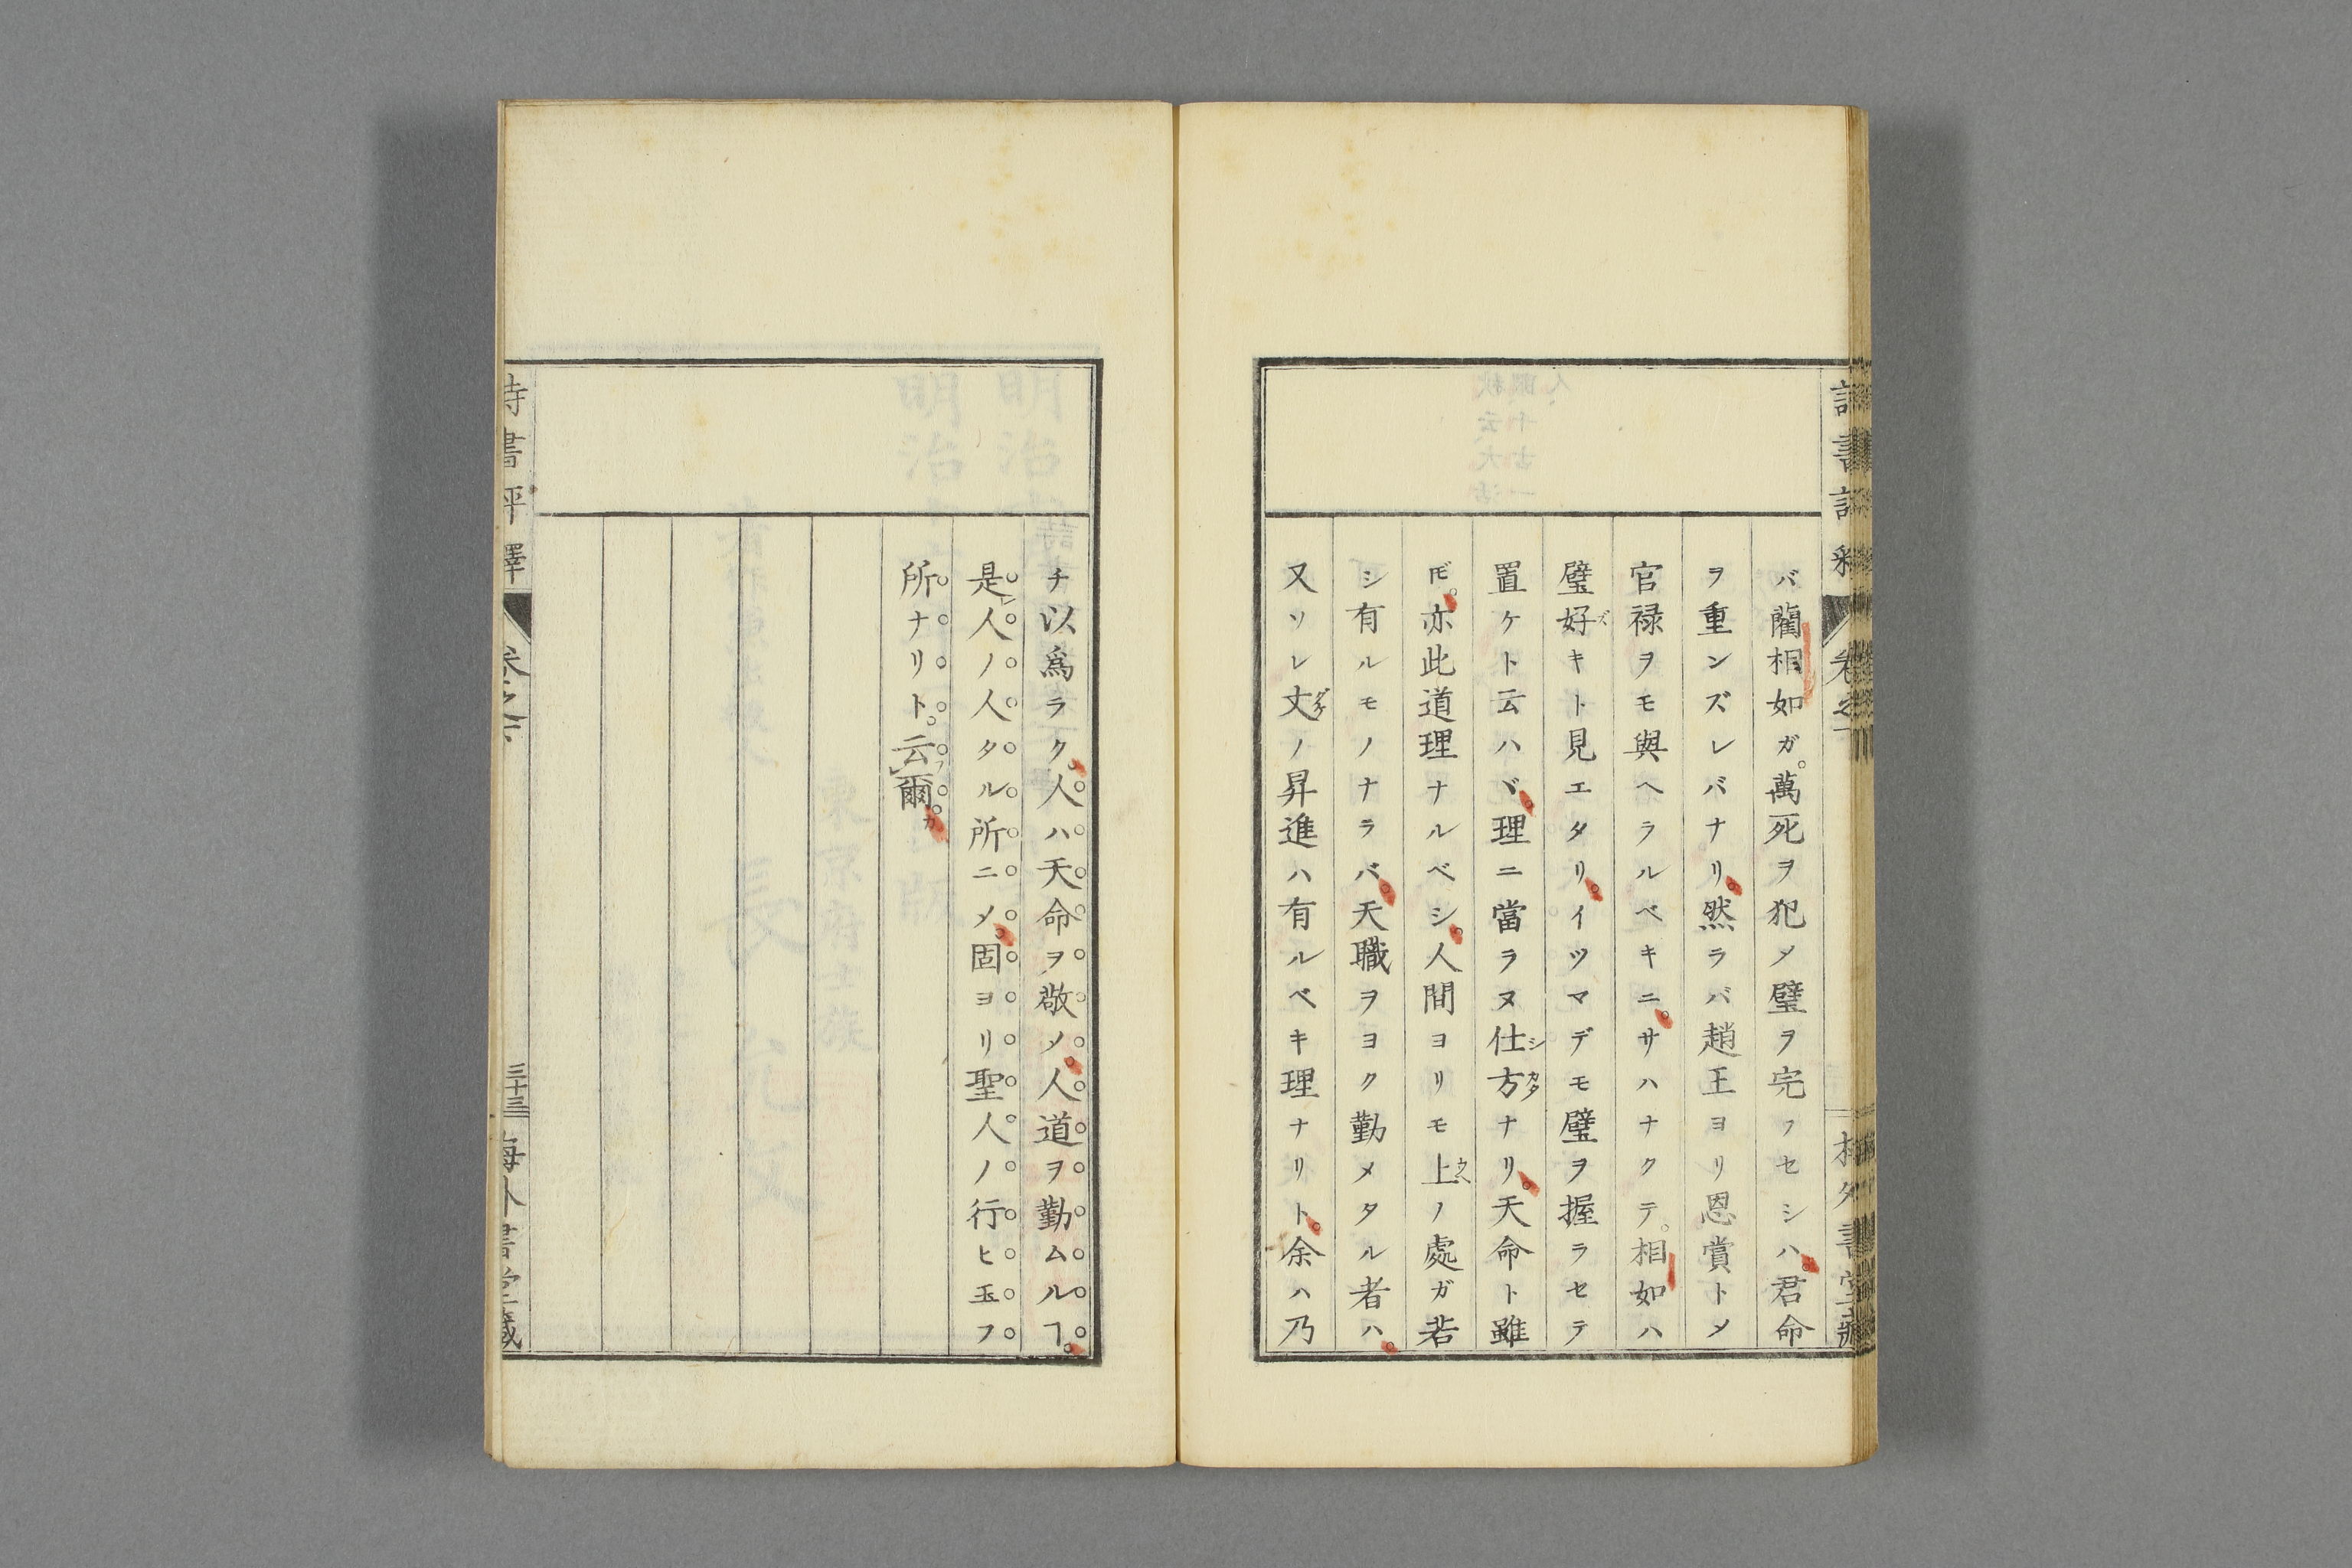 バ藺相如ガ。萬死ヲ犯〆璧ヲ完フセシハ。君命
ヲ重ンズレバナリ。然ラバ趙王ヨリ恩賞ト〆
官禄ヲモ與ヘラルベキニ。サハナクテ。相如ハ
璧好ズキト見エタリ。イツマデモ璧ヲ握ラセテ
置ケト云ハヾ。理ニ當ラヌ仕シ方カタナリ。天命ト雖
𪜈。亦此道理ナルベシ。人間ヨリモ上ウヘノ處ガ若
シ有ルモノナラバ。天職ヲヨク勤メタル者ハ。
又ソレ丈ダケノ昇進ハ有ルベキ理ナリト。余ハ乃
チ以爲ラク。人ハ天命ヲ敬〆。人道ヲ勤ムルヿ。
是レ人ノ人タル所ニ〆。固ヨリ聖人ノ行ヒ玉フ
所ナリト。云フ爾カ。
詩書評釋
卷之下
三十三
梅外書堂藏